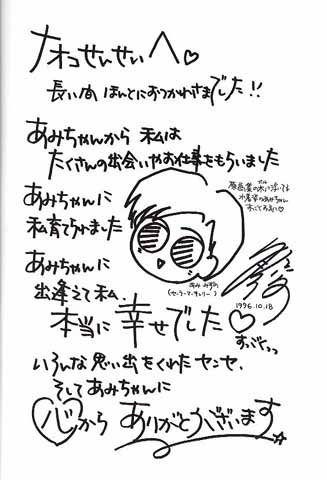 ナオコせんせいへ♡
長い間 ほんとにおつかれさまでした!!
あみちゃんから 私は
たくさんの出会いやお仕事をもらいました
あみちゃんに
私育てられました
あみちゃんに
出逢えて私、
本当に幸せでした♡
あみ みずの
(セーラーマーキュリー)
水星
1996.10.18
いろんな思い出をくれたセンセ、
そしてあみちゃんに
心から ありがとうございます